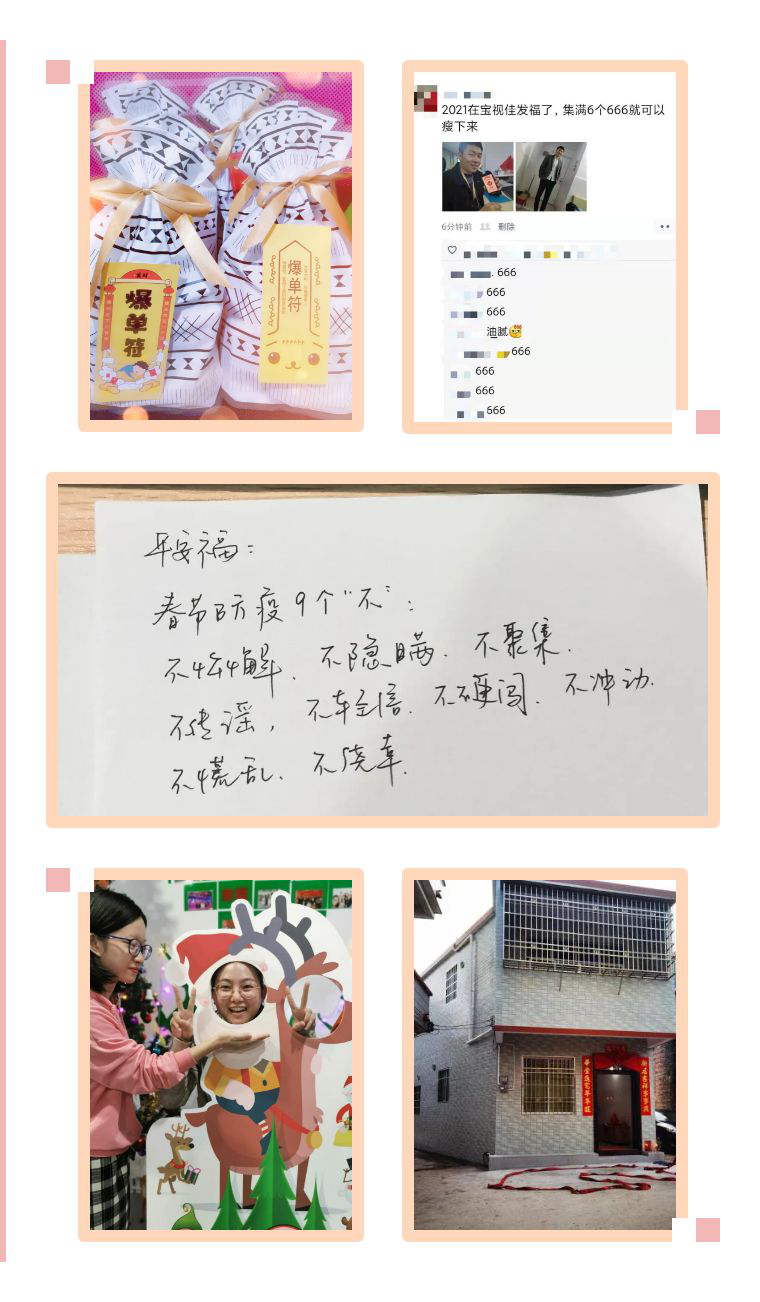 爆单符
爆单符
2021在宝视佳发福了，集满6个666就可以
瘦下来
6分钟前 删除
666
666
666
油腻
666
666
666
666
平安福：
春节防疫9个“不”：
不松懈、不隐瞒、不聚集、
不传谣，不轻信、不硬闯、不冲动、
不慌乱、不侥幸、